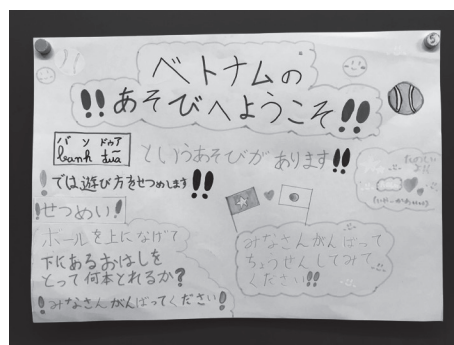 ベトナムの
!!あそびへようこそ!!
バン ドゥア
banh đũa
というあそびがあります!!
!では遊び方をせつめします!!
!せつめい!
ボールを上になげて
下にあるおはしを
とって何本とれるか?
!みなさんがんばってください!
みなさんがんばって
ちょうせんしてみて
ください!!